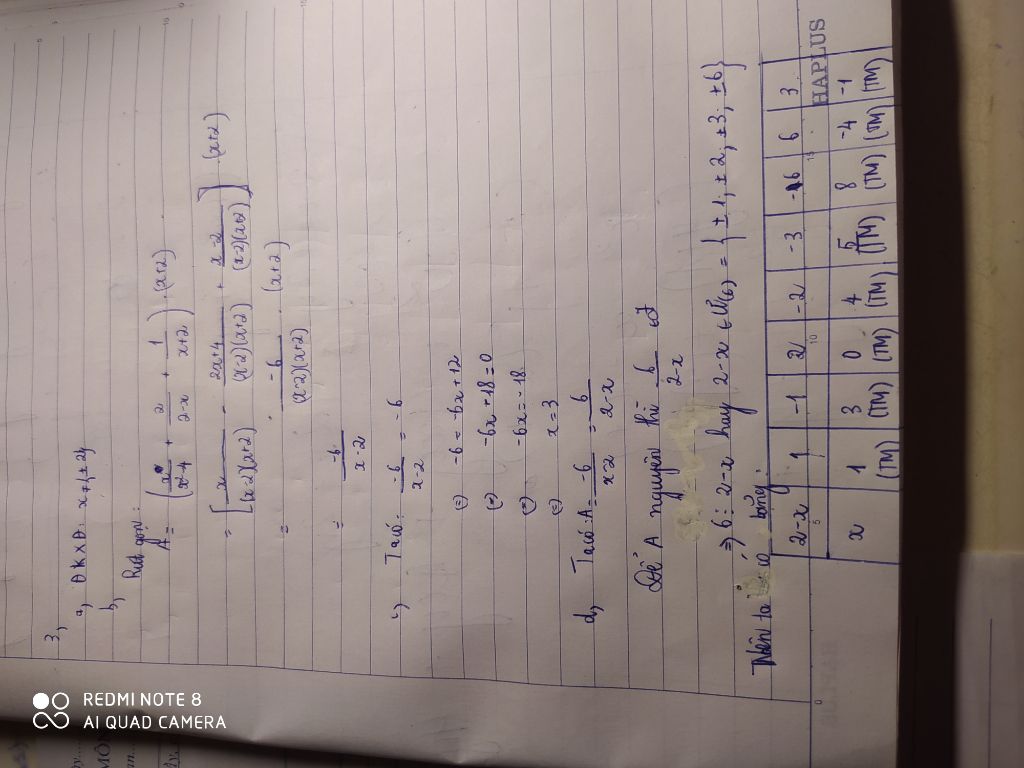 3,
a, ĐKXĐ: x ≠ {± 2}
b,
Rút gọn:
A = (x/(x²-4) + 2/(2-x) + 1/(x+2)) . (x+2)
= [x/((x-2)(x+2)) - (2x+4)/((x-2)(x+2)) + (x-2)/((x-2)(x+2))] (x+2)
= -6/((x-2)(x+2)) (x+2)
= -6/(x-2)
c, Ta có: -6/(x-2) = -6
(=) -6 = -6x+12
(=) -6x+18=0
(=) -6x=-18
(=) x=3
d, Ta có: A = -6/(x-2) = 6/(2-x)
Để A nguyên thì 6/(2-x)
=) 6 ⋮ 2-x hay 2-x ∈ Ư(6) = {±1, ±2, ±3, ±6}
Nên ta có bảng:
2-x 1 -1 2 -2 -3 -6 6 3
x 1 3 0 4 5 8 -4 -1
(TM) (TM) (TM) (TM) (TM) (TM) (TM) (TM)
HAPLUS
REDMI NOTE 8
AI QUAD CAMERA